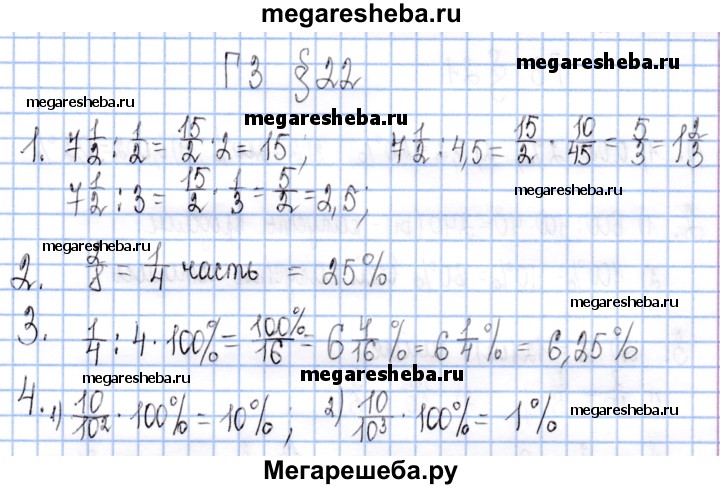 megaresheba.ru
ГЗ § 22
megaresheba.ru
megaresheba.ru
megaresheba.ru
1. 7 1/2 : 1/2 = 15/2 · 2 = 15 ; 7 1/2 : 4,5 = 15/2 · 10/45 = 5/3 = 1 2/3
7 1/2 : 3 = 15/2 · 1/3 = 5/2 = 2,5 ;
megaresheba.ru
2. 2/8 = 1/4 часть = 25%
megaresheba.ru
3. 1/4 : 4 · 100% = 100%/16 = 6 4/16 % = 6 1/4 % = 6,25%
megaresheba.ru
megaresheba.ru
4. 1) 10/10² · 100% = 10% ; 2) 10/10³ · 100% = 1%
megaresheba.ru
Мегарешеба.ру